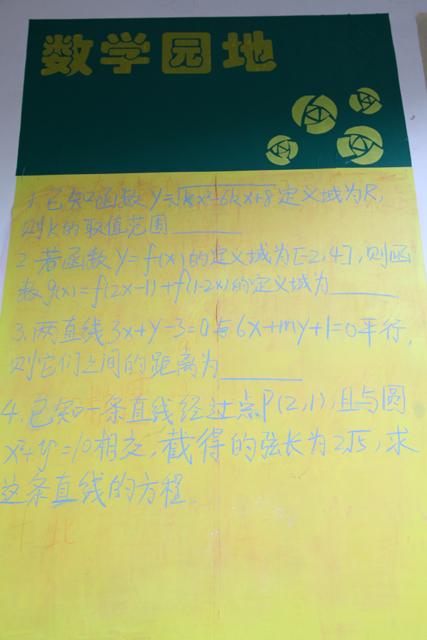 数学园地
1.已知函数y=√kx²-6kx+8定义域为R,
则k的取值范围____
2.若函数y=f(x)的定义域为[-2,4],则函
数g(x)=f(2x-1)+f(1-2x)的定义域为____
3.两直线3x+y-3=0与6x+my+1=0平行,
则它们之间的距离为____
4.已知一条直线经过点P(2,1),且与圆
x²+y²=10相交,截得的弦长为2√5,求
这条直线的方程.